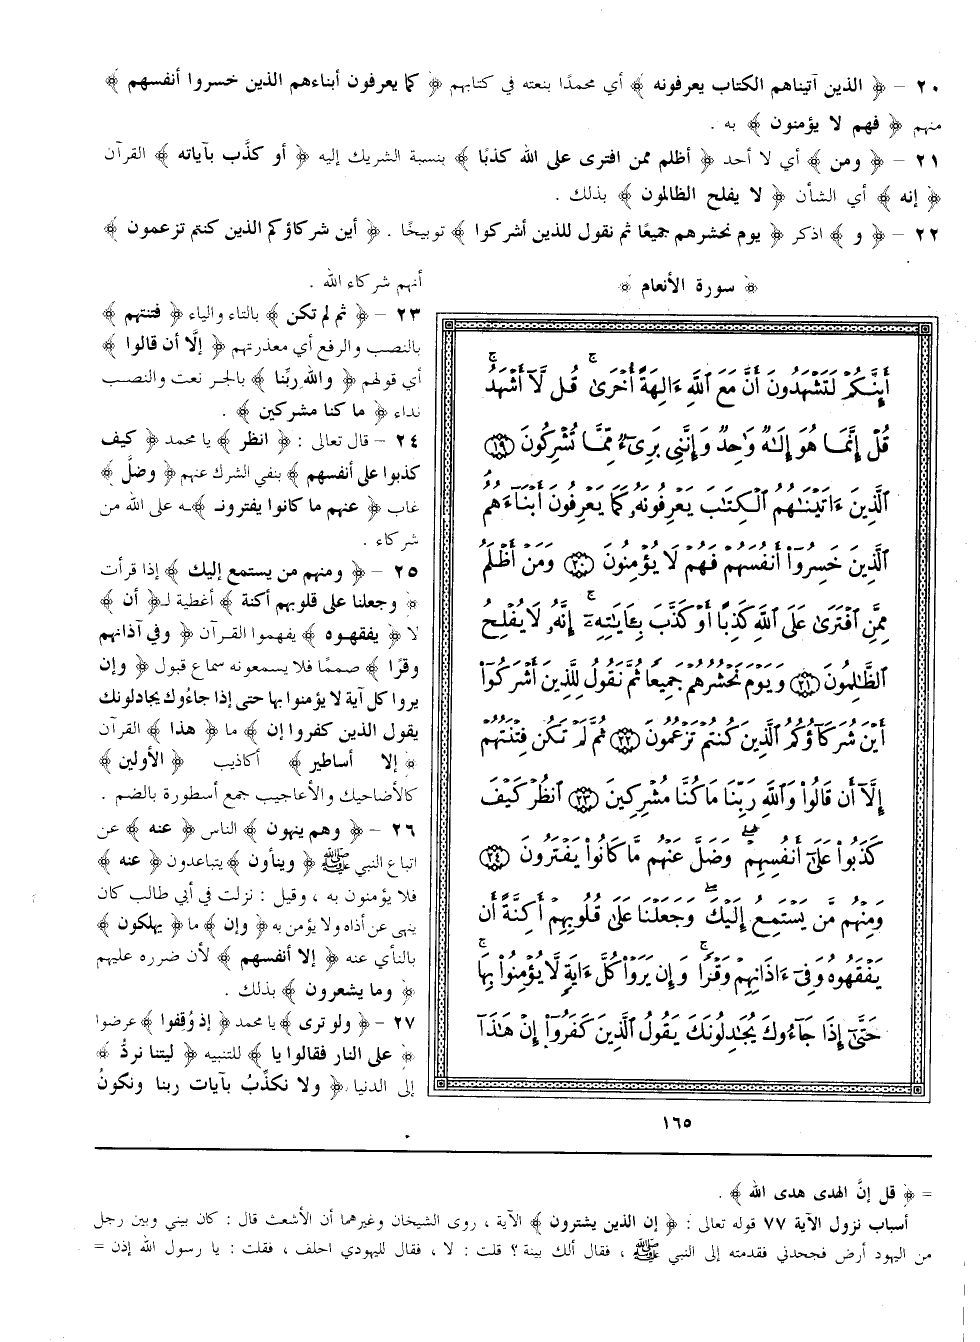 ٢٠ – ﴿ الذين آتيناهم الكتاب يعرفونه ﴾ أي محمدًا بنعته في كتابهم ﴿ كما يعرفون أبناءهم الذين خسروا أنفسهم ﴾
منهم ﴿ فهم لا يؤمنون ﴾ به .
٢١ – ﴿ ومن ﴾ أي لا أحد ﴿ أظلم ممن افترى على الله كذبًا ﴾ بنسبة الشريك إليه ﴿ أو كذَّب بآياته ﴾ القرآن
﴿ إنه ﴾ أي الشأن ﴿ لا يفلح الظالمون ﴾ بذلك .
٢٢ – ﴿ و ﴾ اذكر ﴿ يوم نحشرهم جميعًا ثم نقول للذين أشركوا ﴾ توبيخًا . ﴿ أين شركاؤكم الذين كنتم تزعمون ﴾
أنهم شركاء الله .
٢٣ – ﴿ ثم لم تكن ﴾ بالتاء والياء ﴿ فتنتهم ﴾
بالنصب والرفع أي معذرتهم ﴿ إلَّا أن قالوا ﴾
أي قولهم ﴿ والله ربِّنا ﴾ بالجر نعت والنصب
نداء ﴿ ما كنا مشركين ﴾ .
٢٤ – قال تعالى : ﴿ انظر ﴾ يا محمد ﴿ كيف
كذبوا على أنفسهم ﴾ بنفي الشرك عنهم ﴿ وضلَّ ﴾
غاب ﴿ عنهم ما كانوا يفترونـ ﴾ـه على الله من
شركاء .
٢٥ – ﴿ ومنهم من يستمع إليك ﴾ إذا قرأت
﴿ وجعلنا على قلوبهم أكنة ﴾ أغطية لـ﴿ أن ﴾
لا ﴿ يفقهوه ﴾ يفهموا القرآن ﴿ وفي آذانهم
وقرًا ﴾ صممًا فلا يسمعونه سماع قبول ﴿ وإن
يروا كل آية لا يؤمنوا بها حتى إذا جاءوك يجادلونك
يقول الذين كفروا إن ﴾ ما ﴿ هذا ﴾ القرآن
﴿ إلا أساطير ﴾ أكاذيب ﴿ الأولين ﴾
كالأضاحيك والأعاجيب جمع أسطورة بالضم .
٢٦ – ﴿ وهم ينهون ﴾ الناس ﴿ عنه ﴾ عن
اتباع النبي ﷺ ﴿ وينأون ﴾ يتباعدون ﴿ عنه ﴾
فلا يؤمنون به ، وقيل : نزلت في أبي طالب كان
ينهى عن أذاه ولا يؤمن به ﴿ وإن ﴾ ما ﴿ يهلكون ﴾
بالنأي عنه ﴿ إلا أنفسهم ﴾ لأن ضرره عليهم
﴿ وما يشعرون ﴾ بذلك .
٢٧ – ﴿ ولو ترى ﴾ يا محمد ﴿ إذ وُقِفوا ﴾ عرضوا
﴿ على النار فقالوا يا ﴾ للتنبيه ﴿ ليتنا نردُّ ﴾
إلى الدنيا ﴿ ولا نكذِّبُ بآيات ربنا ونكونُ
﴿ سورة الأنعام ﴾
أَئِنَّكُمْ لَتَشْهَدُونَ أَنَّ مَعَ ٱللَّهِ ءَالِهَةً أُخْرَىٰ ۚ قُل لَّآ أَشْهَدُ ۚ
قُلْ إِنَّمَا هُوَ إِلَٰهٌ وَٰحِدٌ وَإِنَّنِى بَرِىٓءٌ مِّمَّا تُشْرِكُونَ ﴿١٩﴾
ٱلَّذِينَ ءَاتَيْنَٰهُمُ ٱلْكِتَٰبَ يَعْرِفُونَهُۥ كَمَا يَعْرِفُونَ أَبْنَآءَهُمُ
ٱلَّذِينَ خَسِرُوٓا۟ أَنفُسَهُمْ فَهُمْ لَا يُؤْمِنُونَ ﴿٢٠﴾ وَمَنْ أَظْلَمُ
مِمَّنِ ٱفْتَرَىٰ عَلَى ٱللَّهِ كَذِبًا أَوْ كَذَّبَ بِـَٔايَٰتِهِۦٓ ۗ إِنَّهُۥ لَا يُفْلِحُ
ٱلظَّٰلِمُونَ ﴿٢١﴾ وَيَوْمَ نَحْشُرُهُمْ جَمِيعًا ثُمَّ نَقُولُ لِلَّذِينَ أَشْرَكُوٓا۟
أَيْنَ شُرَكَآؤُكُمُ ٱلَّذِينَ كُنتُمْ تَزْعُمُونَ ﴿٢٢﴾ ثُمَّ لَمْ تَكُن فِتْنَتُهُمْ
إِلَّآ أَن قَالُوا۟ وَٱللَّهِ رَبِّنَا مَا كُنَّا مُشْرِكِينَ ﴿٢٣﴾ ٱنظُرْ كَيْفَ
كَذَبُوا۟ عَلَىٰٓ أَنفُسِهِمْ ۚ وَضَلَّ عَنْهُم مَّا كَانُوا۟ يَفْتَرُونَ ﴿٢٤﴾
وَمِنْهُم مَّن يَسْتَمِعُ إِلَيْكَ ۖ وَجَعَلْنَا عَلَىٰ قُلُوبِهِمْ أَكِنَّةً أَن
يَفْقَهُوهُ وَفِىٓ ءَاذَانِهِمْ وَقْرًا ۚ وَإِن يَرَوْا۟ كُلَّ ءَايَةٍ لَّا يُؤْمِنُوا۟ بِهَا ۚ
حَتَّىٰٓ إِذَا جَآءُوكَ يُجَٰدِلُونَكَ يَقُولُ ٱلَّذِينَ كَفَرُوٓا۟ إِنْ هَٰذَآ
١٦٥
= ﴿ قل إنَّ الهدى هدى الله ﴾ .
أسباب نزول الآية ٧٧ قوله تعالى : ﴿ إن الذين يشترون ﴾ الآية ، روى الشيخان وغيرهما أن الأشعث قال : كان بيني وبين رجل
من اليهود أرض فجحدني فقدمته إلى النبي ﷺ ، فقال ألك بينة ؟ قلت : لا ، فقال لليهودي احلف ، فقلت : يا رسول الله إذن =